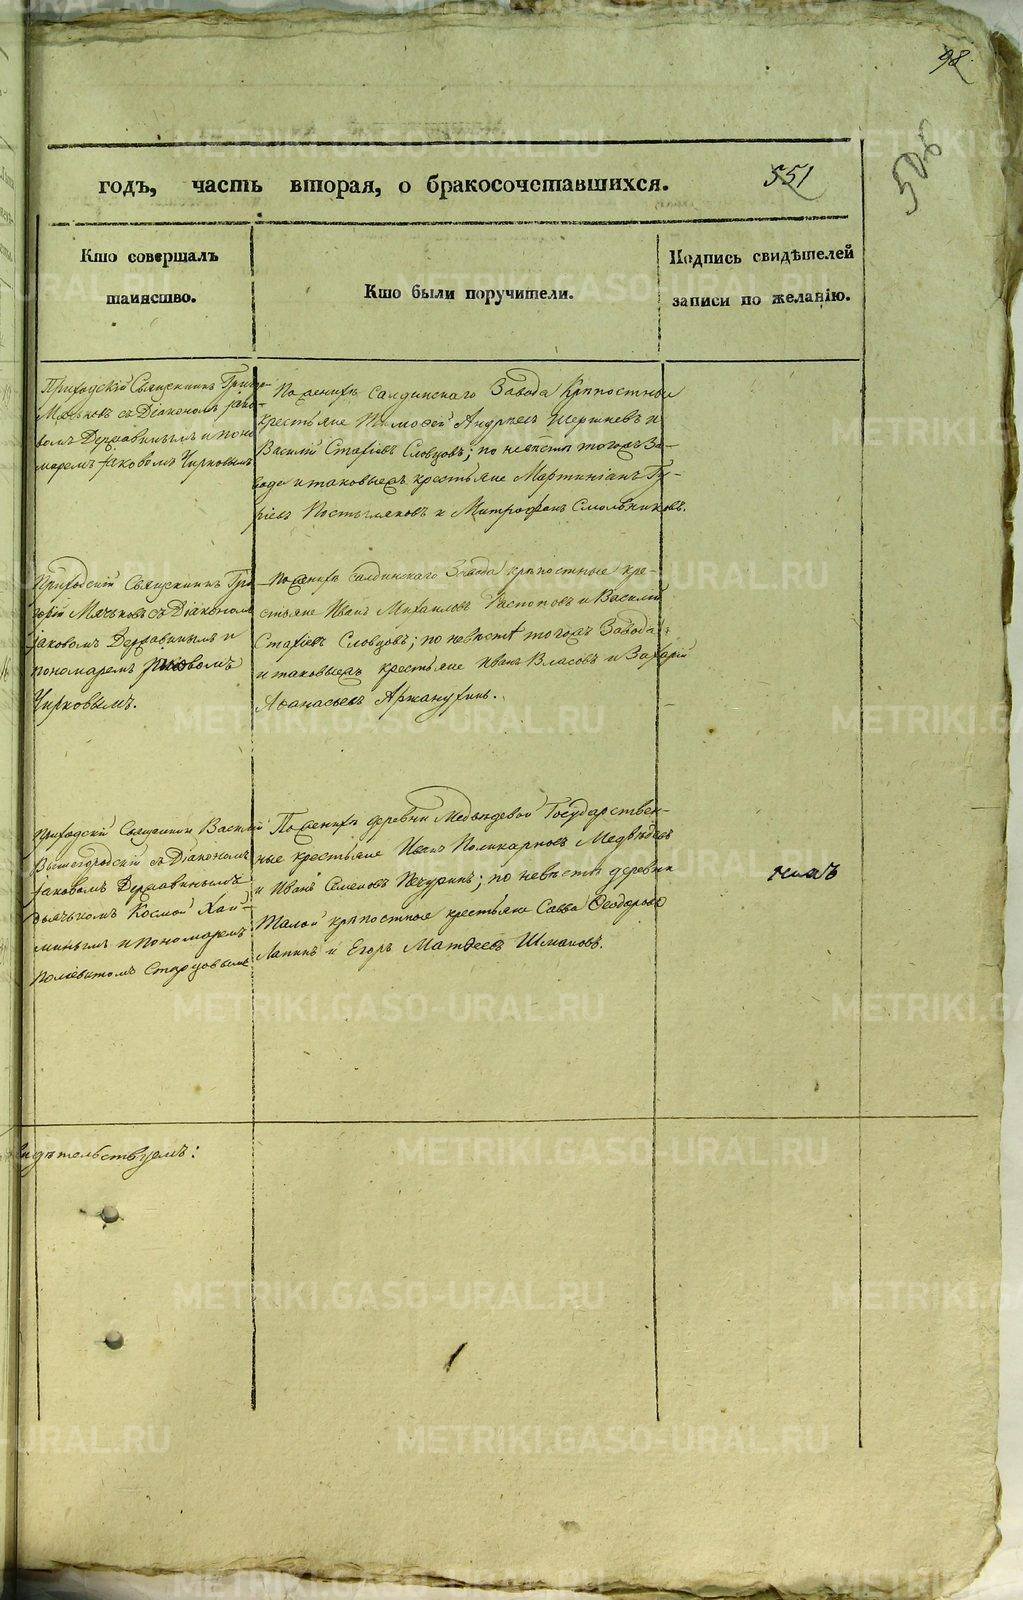 98.
508
годъ, часть вторая, о бракосочетавшихся.
551
Кто совершалъ
таинство.
Кто были поручители.
Подпись свидѣтелей
записи по желанію.
Приходскій Священникъ Григо-
Мячковъ съ Діакономъ Іако-
вомъ Державинымъ и поно
маремъ Іаковомъ Чирковымъ
По женихѣ Салдинскаго Завода Крѣпостные
крестьяне Тимофей Андреевъ и
Василій Стафіевъ Словцовъ; по невѣстѣ тогожъ За-
вода и таковыежъ крестьяне Мартиніанъ Гу-
ріевъ Постыляковъ и Митрофанъ Смольниковъ.
Приходскій Священникъ Гри
горій Мячковъ съ Діакономъ
Іаковомъ Державинымъ и
пономаремъ Іаковомъ
Чирковымъ.
По женихѣ Салдинскаго Завода крѣпостные кре-
стьяне Иванъ Михаиловъ Распоповъ и Василій
Стафіевъ Словцовъ; по невѣстѣ тогожъ Завода
и таковыежъ крестьяне Иванъ Власовъ и Захарій
Афанасьевъ Аржанухинъ.
Приходскій Священникъ Василій
Вышегородскій съ Діакономъ
Іаковомъ Державинымъ
дьячкомъ Космой Хлы-
нинымъ и пономаремъ
Поліевктомъ Старцовымъ
По женихѣ деревни Медвѣдевой Государствен-
ные крестьяне Иванъ Поликарповъ Медвѣдевъ
и Иванъ Семеновъ Печуринъ; по невѣстѣ деревни
Талой крѣпостные крестьяне Савва Феодоровъ
Лапинъ и Егоръ Матфеевъ Шмаковъ.
видѣтельствуемъ:
METRIKI.GASO-URAL.RU